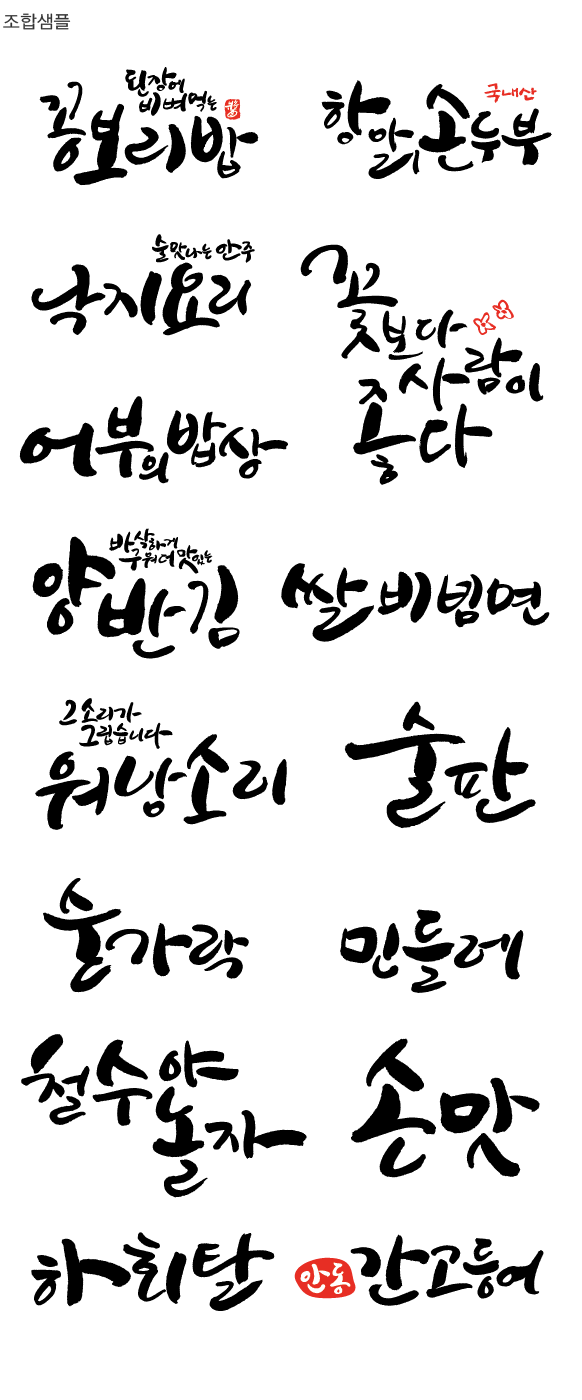 조합샘플
된장에
비벼먹는
꽁보리밥
국내산
항아리손두부
술맛나는 안주
낙지요리
꽃보다
사람이
좋다
어부의밥상
바삭하게
구워더맛있는
양반김
쌀비빔면
그소리가
그립습니다
워낭소리
술판
숟가락
민들레
철수야
놀자
손맛
하회탈
안동
간고등어